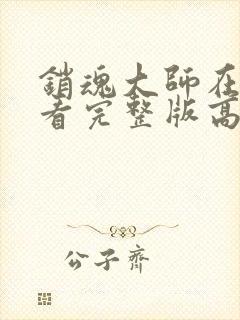 銷魂大師在
看完整版高
公子齊